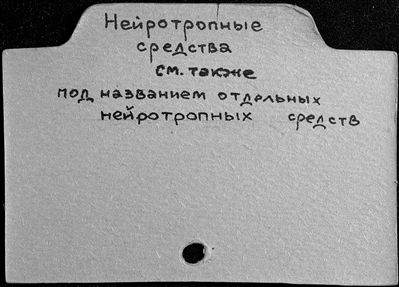 Нейротропные
средства
см. также
под названием отдельных
нейротропных средств